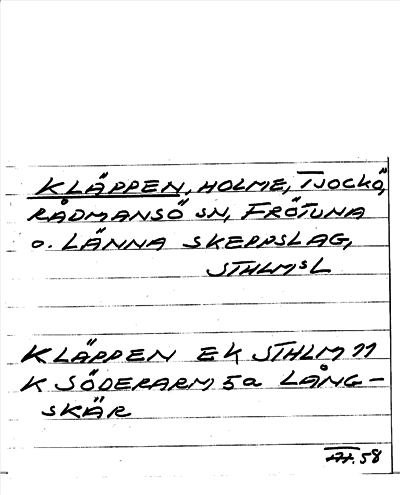 KLÄPPEN, HOLME, TJOCKÖ,
RÅDMANSÖ SN, FRÖTUNA
O. LÄNNA SKEPPSLAG,
STHLMS L
KLÄPPEN EK STHLM 11
K SÖDERARM 5a LÅNG-
SKÄR
58